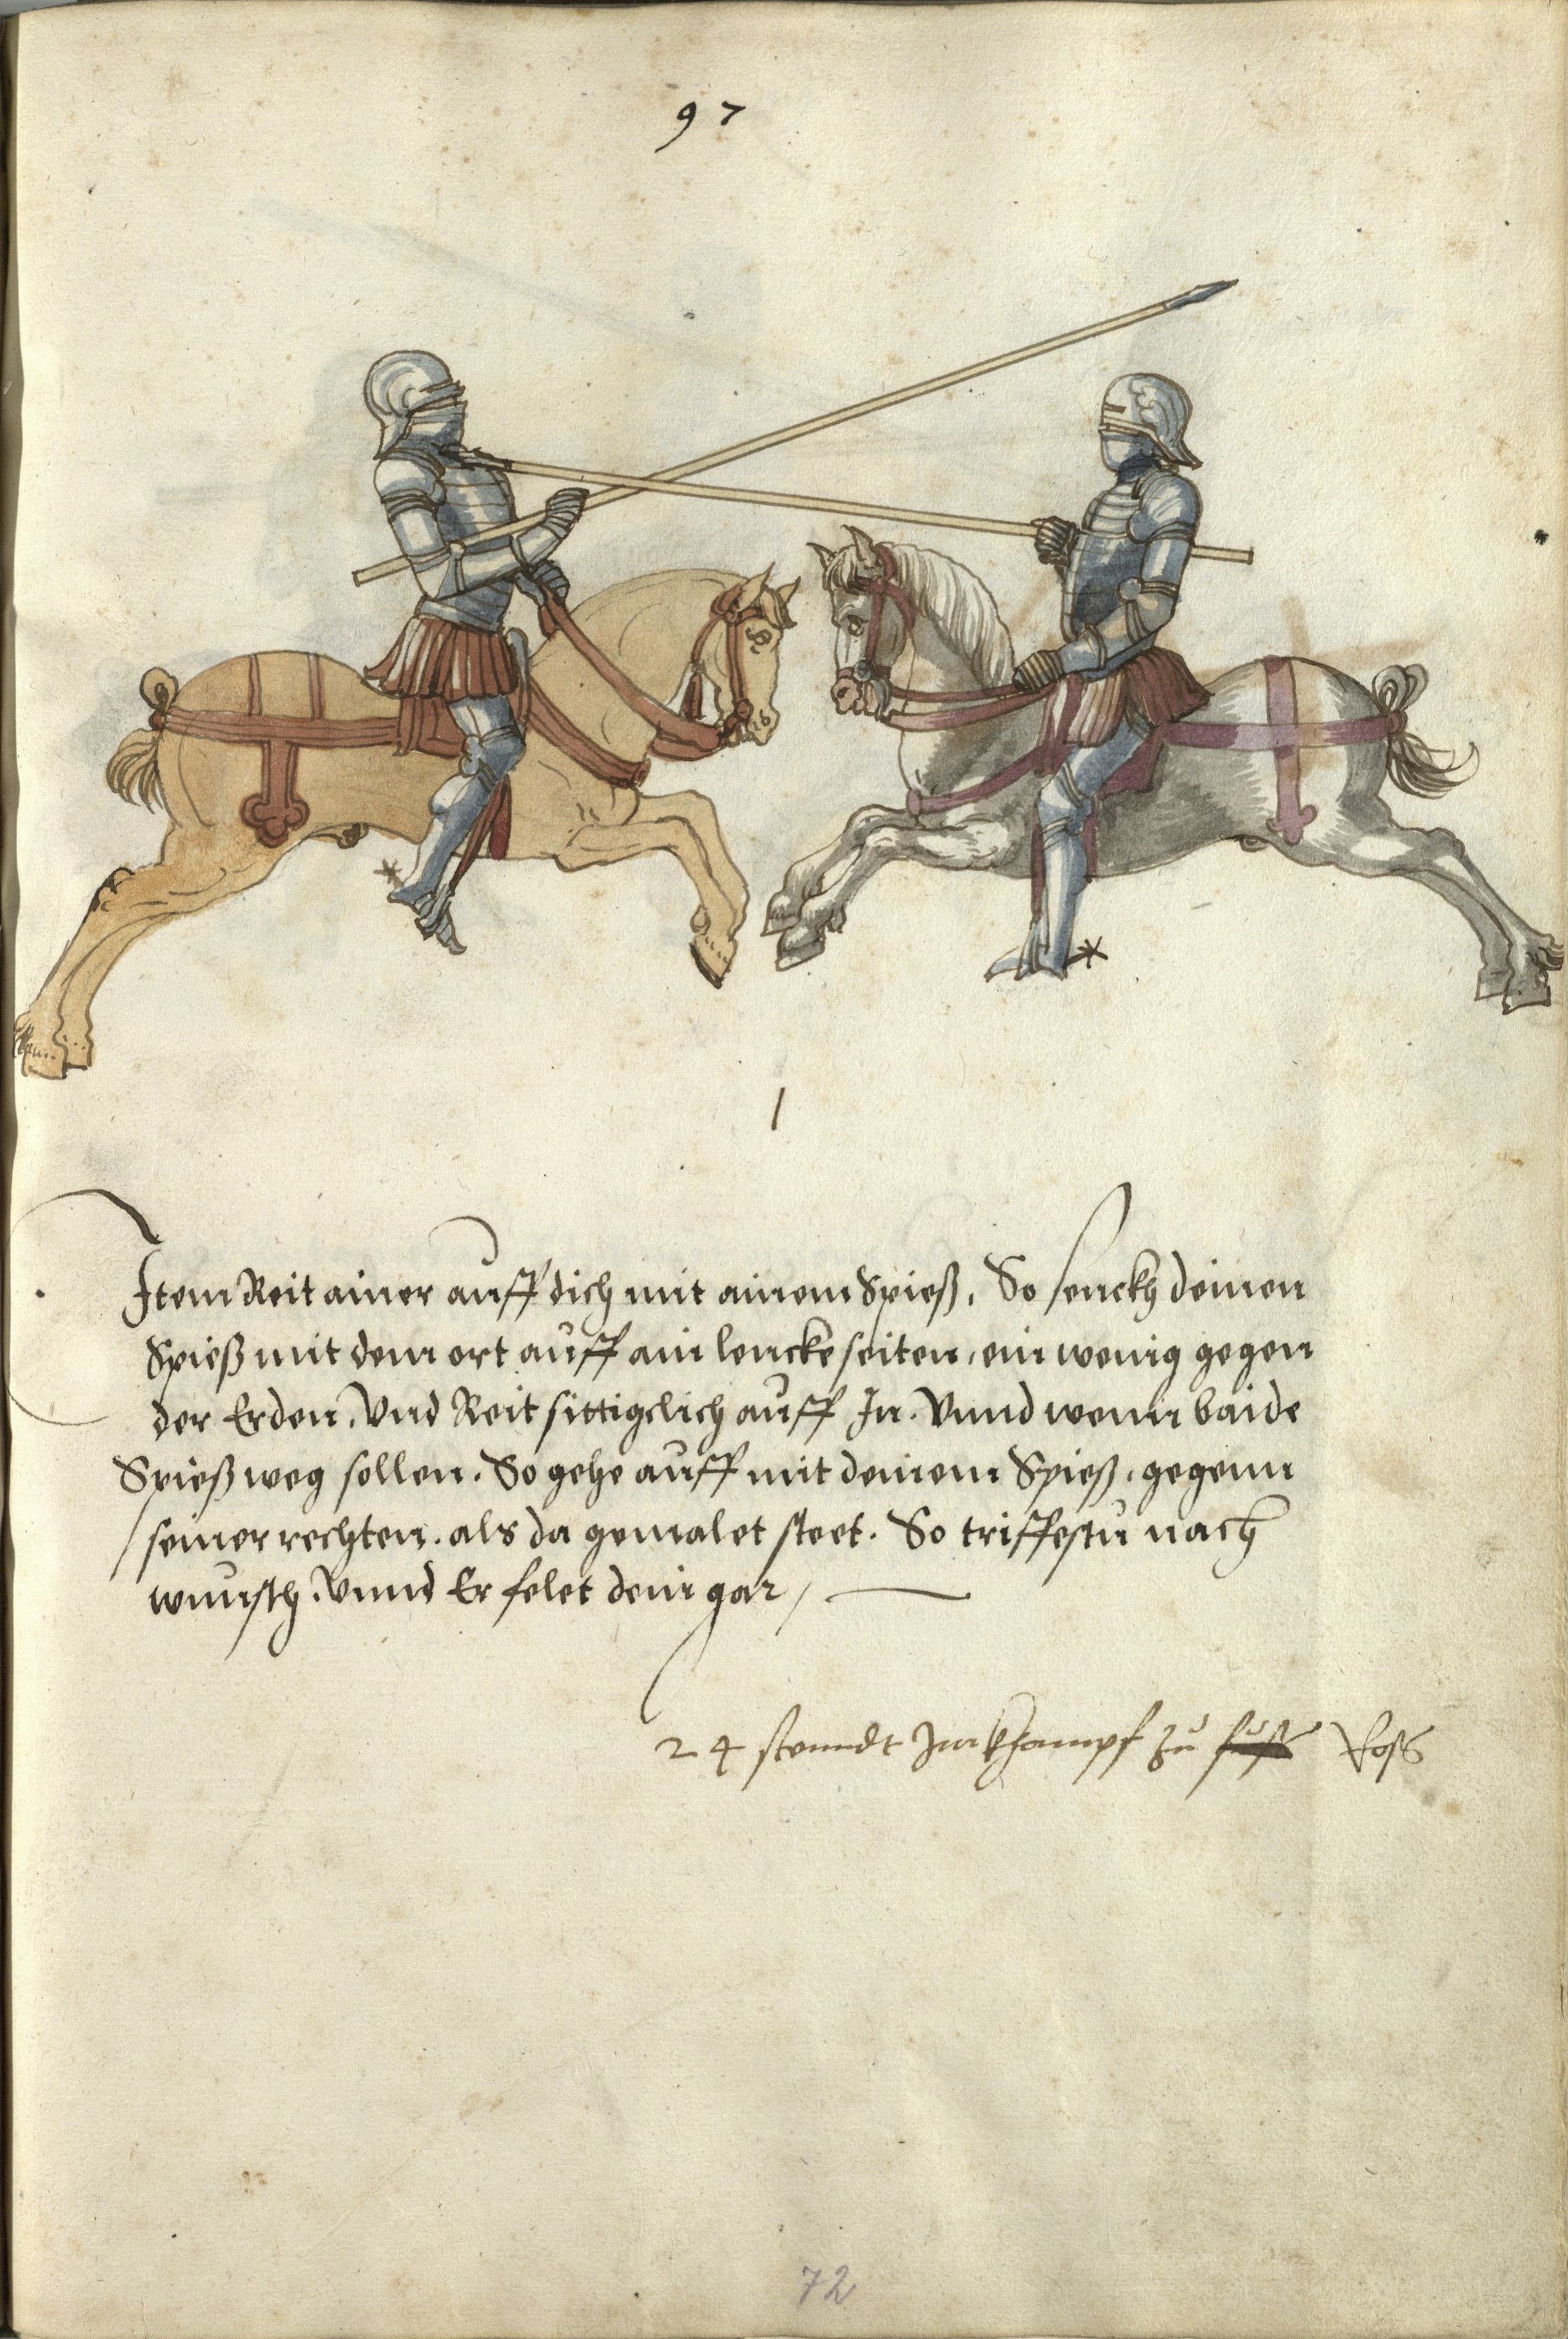 97
1
Item Reit ainer auff dich mit ainem Spieß. So senckh deinen
Spieß mit dem ort auff ain lencke seiten, ein wenig gegen
der Erden. Vnd Reit sittigclich auff In. Vnnd wenn baide
Spieß weg sollen. So gehe auff mit deinem Spieß, gegenn
seiner rechten. als da gemalet steet. So triffestu nach
wunsch. Vnnd Er felet dein gar /
24 stenndt Im Khampf zů fuſs Roſs
72